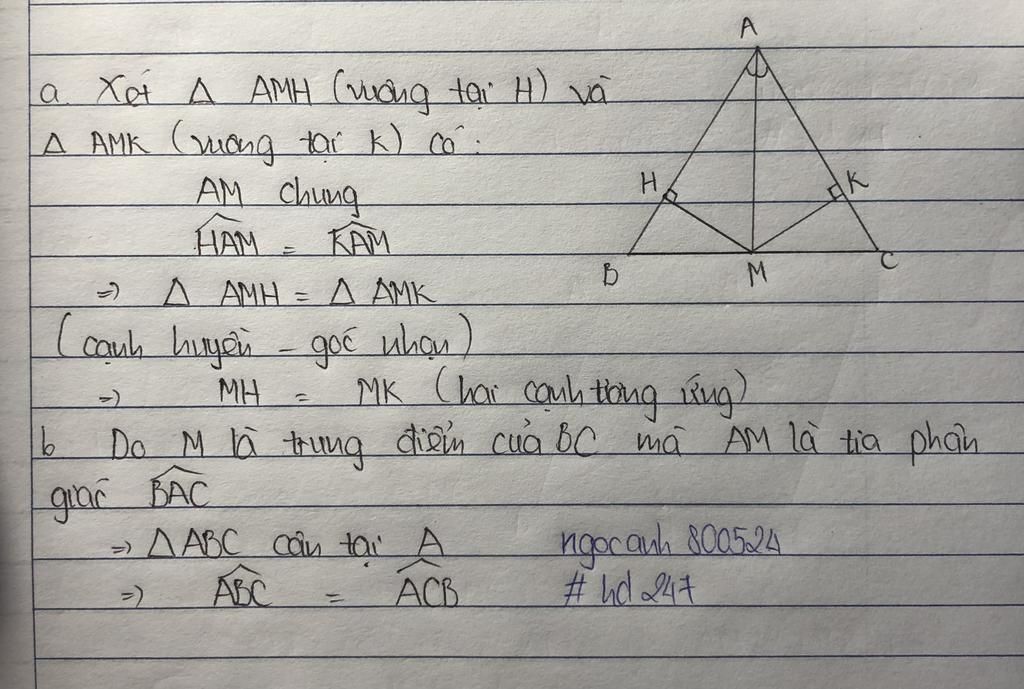 a. Xét Δ AMH (vuông tại H) và
Δ AMK (vuông tại K) có:
AM chung
\widehat{HAM} = \widehat{KAM}
=> Δ AMH = Δ AMK
(cạnh huyền - góc nhọn)
=> MH = MK (hai cạnh tương ứng)
b Do M là trung điểm của BC mà AM là tia phân
giác \widehat{BAC}
=> Δ ABC cân tại A
=> \widehat{ABC} = \widehat{ACB}
ngocanh 800524
# hd 247
A
H
K
B
M
C